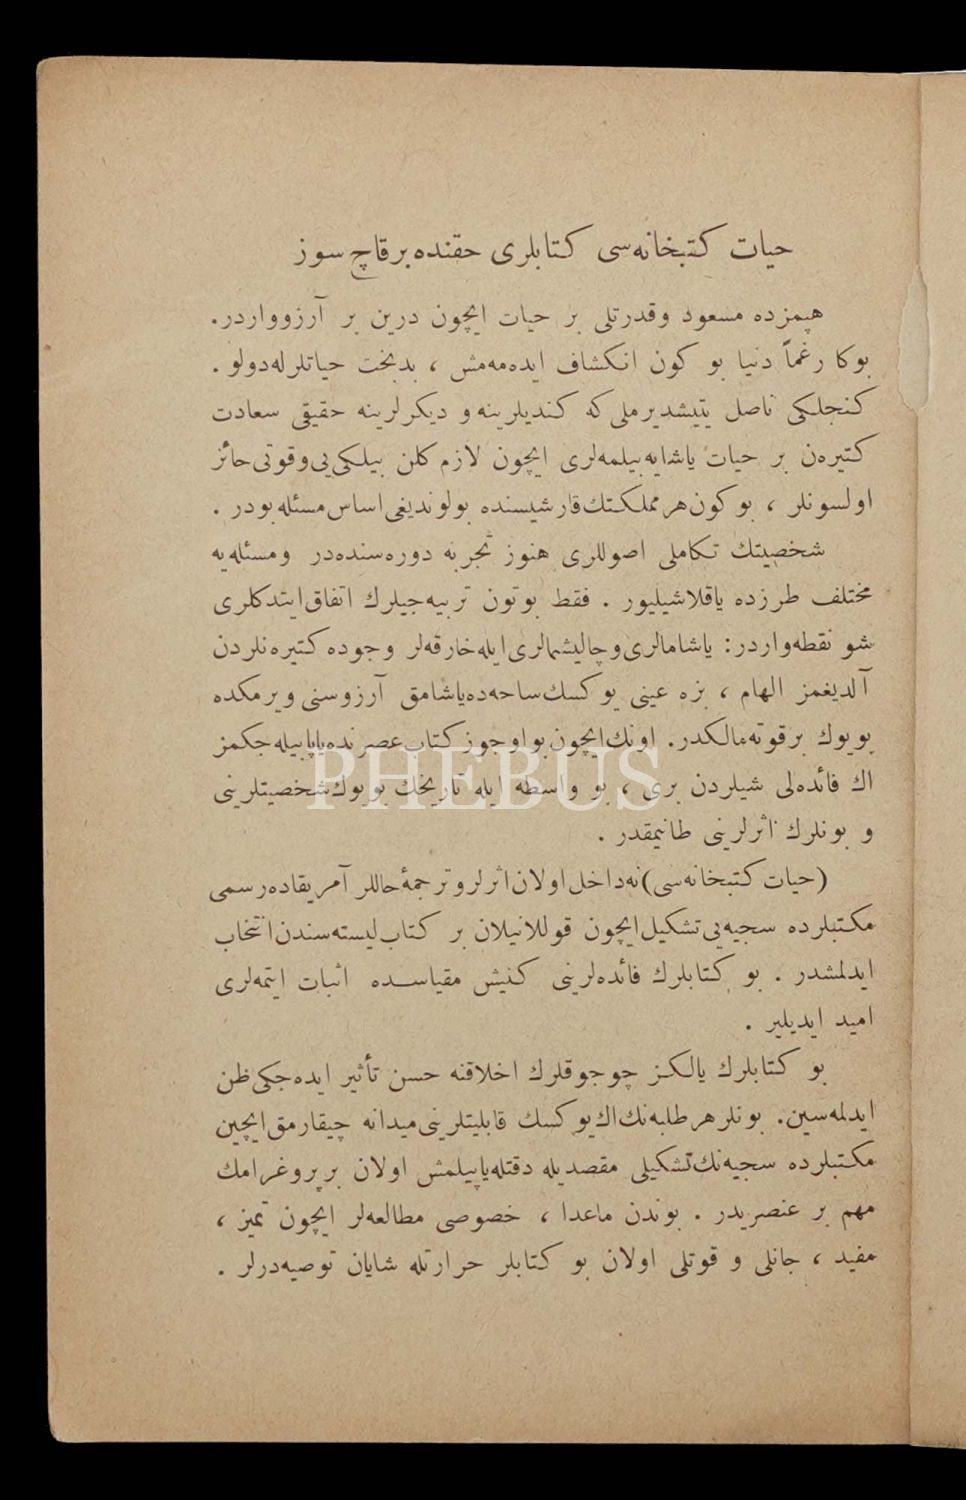 حیات كتبخانه‌سی كتابلری حقنده برقاچ سوز
هپمزده مسعود وقدرتلی بر حیات ایچون درین بر آرزوواردر.
بوكا رغماً دنیا بو كون انكشاف ایده‌مه‌مش ، بدبخت حیاتلرله‌دولو .
كنجلكی ناصل یتیشدیرملی‌كه كندیلرینه و دیكرلرینه حقیقی سعادت
كتیره‌ن بر حیات یاشایه‌بیلمه‌لری ایچون لازم كلن بیلكی‌یی‌وقوتی حائز
اولسونلر ، بو كون‌هر مملكتك‌قارشیسنده بولوندیغی‌اساس‌مسئله‌بودر .
شخصیتك تكاملی اصوللری هنوز تجربه دوره‌سنده‌در ومسئله‌یه
مختلف طرزده یاقلاشیلیور . فقط بوتون تربیه‌جیلرك اتفاق‌ایتدكلری
شو نقطه‌واردر: یاشامالری‌وچالیشمالری‌ایله‌خارقه‌لر وجوده كتیره‌نلردن
آلدیغمز الهام ، بزه عینی یوكسك‌ساحه‌ده‌یاشامق آرزوسنی ویرمكده
بویوك برقوته‌مالكدر. اونك‌ایچون‌بواوجوز كتاب‌عصرنده‌یاپابیله‌جكمز
اك فائده‌لی شیلردن بری ، بو واسطه ایله تاریخك بویوك‌شخصیتلرینی
و بونلرك اثرلرینی طانیمقدر .
(حیات كتبخانه‌سی)نه‌داخل‌اولان‌اثرلروترجمهٔ‌حاللر آمریقاده‌رسمی
مكتبلرده سجیه‌یی‌تشكیل‌ایچون قوللانیلان بر كتاب‌لیسته‌سندن‌انتخاب
ایدلمشدر . بو كتابلرك فائده‌لرینی كنیش مقیاسده اثبات ایتمه‌لری
امید ایدیلیر .
بو كتابلرك یالكز چوجوقلرك اخلاقنه حسن تأثیر ایده‌جكی‌ظن
ایدلمه‌سین. بونلرهرطلبه‌نك‌اك‌یوكسك قابلیتلرینی‌میدانه چیقارمق‌ایچین
مكتبلرده سجیه‌نك‌تشكیلی مقصدیله دقتله‌یاپیلمش اولان برپروغرامك
مهم بر عنصریدر . بوندن ماعدا ، خصوصی مطالعه‌لر ایچون تمیز ،
مفید ، جانلی و قوتلی اولان بو كتابلر حرارتله شایان توصیه‌درلر .
PHEBUS